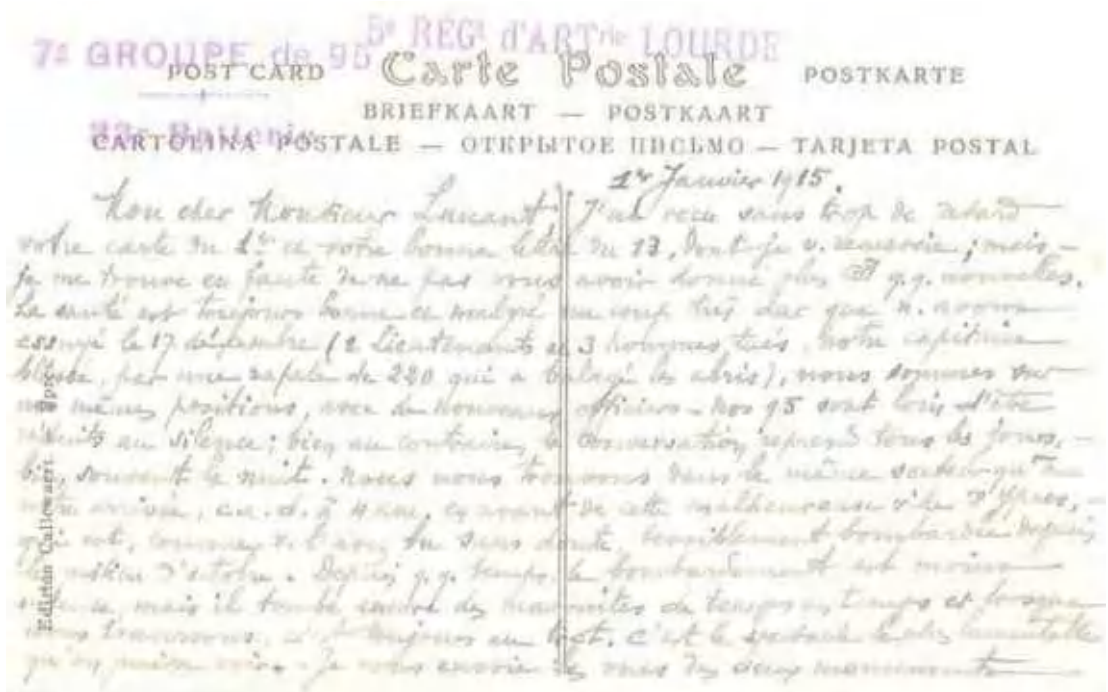 5e REGt d'ARTrie LOURDE
7e GROUPE de 95
POST CARD Carte Postale POSTKARTE
BRIEFKAART — POSTKAART
Batterie
CARTOLINA POSTALE — ОТКРЫТОЕ ПИСЬМО — TARJETA POSTAL
1er Janvier 1915.
Mon cher Monsieur J'ai reçu sans trop de retard
votre carte du 1er et votre bonne lettre du 13, dont je v. remercie ; mais
je me trouve en faute de ne pas vous avoir donné plus q.q. nouvelles.
La santé est toujours bonne et malgré un coup très dur que n. avons
essuyé le 17 décembre (2 Lieutenants et 3 hommes tués, notre capitaine
blessé, par une rafale de 220 qui a les abris), nous sommes sur
nos mêmes positions, avec de nouveaux officiers - nos 95 sont loin d'être
réduits au silence ; bien au contraire, la conversation reprend tous les jours,
bien souvent la nuit. Nous nous trouvons dans le même secteur qu'à
notre arrivée, c.à.d. à 4 km. en avant de cette malheureuse ville d'Ypres,
qui est, comme v. l'avez su sans doute, terriblement bombardée depuis
le milieu d'octobre. Depuis q.q. temps, le bombardement est moins
intense, mais il tombe encore des marmites de temps en temps et lorsque
nous traversons, c'est toujours au trot. C'est le spectacle le plus lamentable
qu'on puisse voir. Je vous envoie les vues des deux monuments
Edition Callewaert Ypres